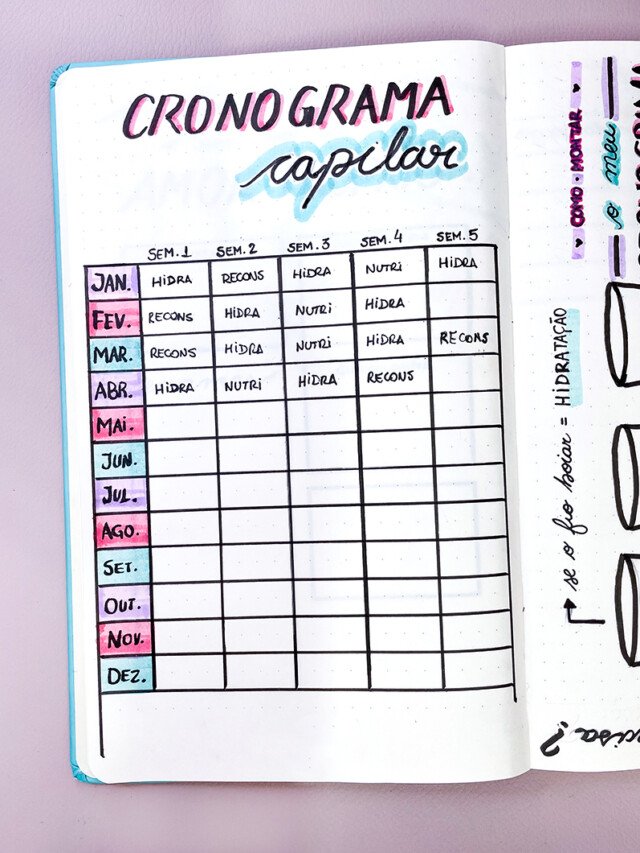 CRONOGRAMA
capilar
SEM. 1 SEM. 2 SEM. 3 SEM. 4 SEM. 5
JAN. HiDRA RECONS HiDRA NUTRi HiDRA
FEV. RECONS HiDRA NUTRi HiDRA
MAR. RECONS HiDRA NUTRi HiDRA RECONS
ABR. HiDRA NUTRi HiDRA RECONS
MAi.
JUN.
JUL.
AGO.
SET.
OUT.
NOV.
DEZ.
COMO • MONTAR
o meu
se o fio boiar = HIDRATAÇÃO